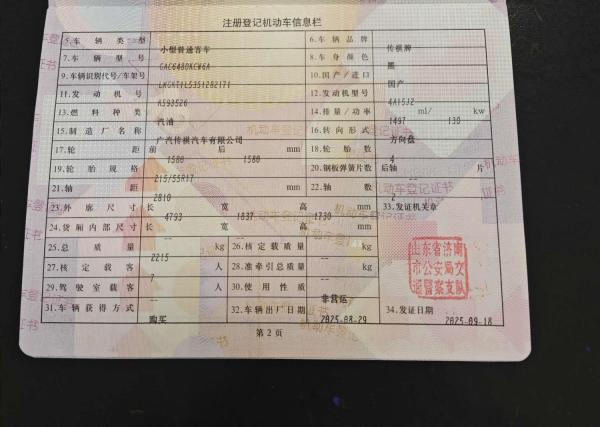 注册登记机动车信息栏
5.车辆类型 小型普通客车 6.车辆品牌 传祺牌
7.车辆型号 GAC6480KCW6A 8.车身颜色 黑
9.车辆识别代号/车架号 LKGKT1L5351282171 10.国产/进口 国产
11.发动机号 K593526 12.发动机型号 4A15J2
13.燃料种类 汽油 14.排量/功率 1497 ml/ 130 kw
15.制造厂名称 广汽传祺汽车有限公司 16.转向形式 方向盘
17.轮距 前 1580 后 1580 mm 18.轮胎数 4
19.轮胎规格 215/55R17 20.钢板弹簧片数 后轴 -- 片
21.轴距 2810 mm 22.轴数 2
23.外廓尺寸 长 4793 宽 1837 高 1730 mm 33.发证机关章
24.货厢内部尺寸 长 -- 宽 -- 高 -- mm
25.总质量 2215 kg 26.核定载质量 -- kg
27.核定载客 7 人 28.准牵引总质量 -- kg
29.驾驶室载客 -- 人 30.使用性质 非营运
31.车辆获得方式 购买 32.车辆出厂日期 2025-08-29 34.发证日期 2025-09-18
山东省济南
市公安局交
通警察支队
第2页
机动车登记证书